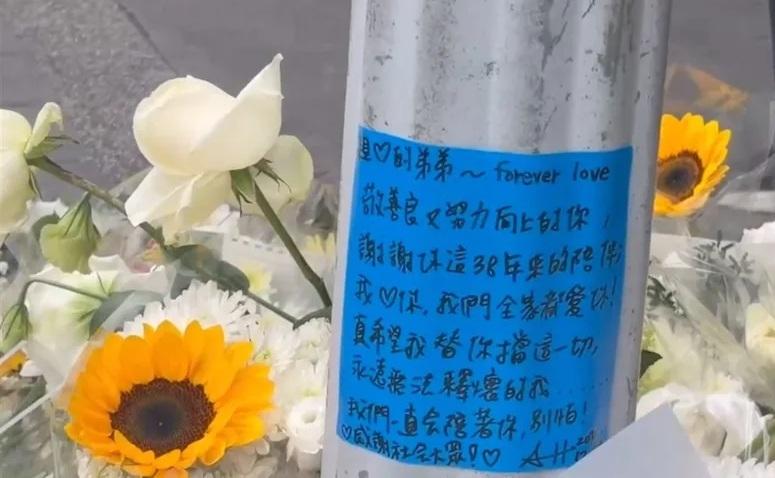 ♡的弟弟~ forever love
敬善良又努力向上的你,
謝謝你這38年來的陪伴,
我♡你,我們全家都愛你!
真希望我替你擋這一切,
永遠無法釋懷的我......
我們一直會陪著你,別怕!
♡感謝社會大眾!♡